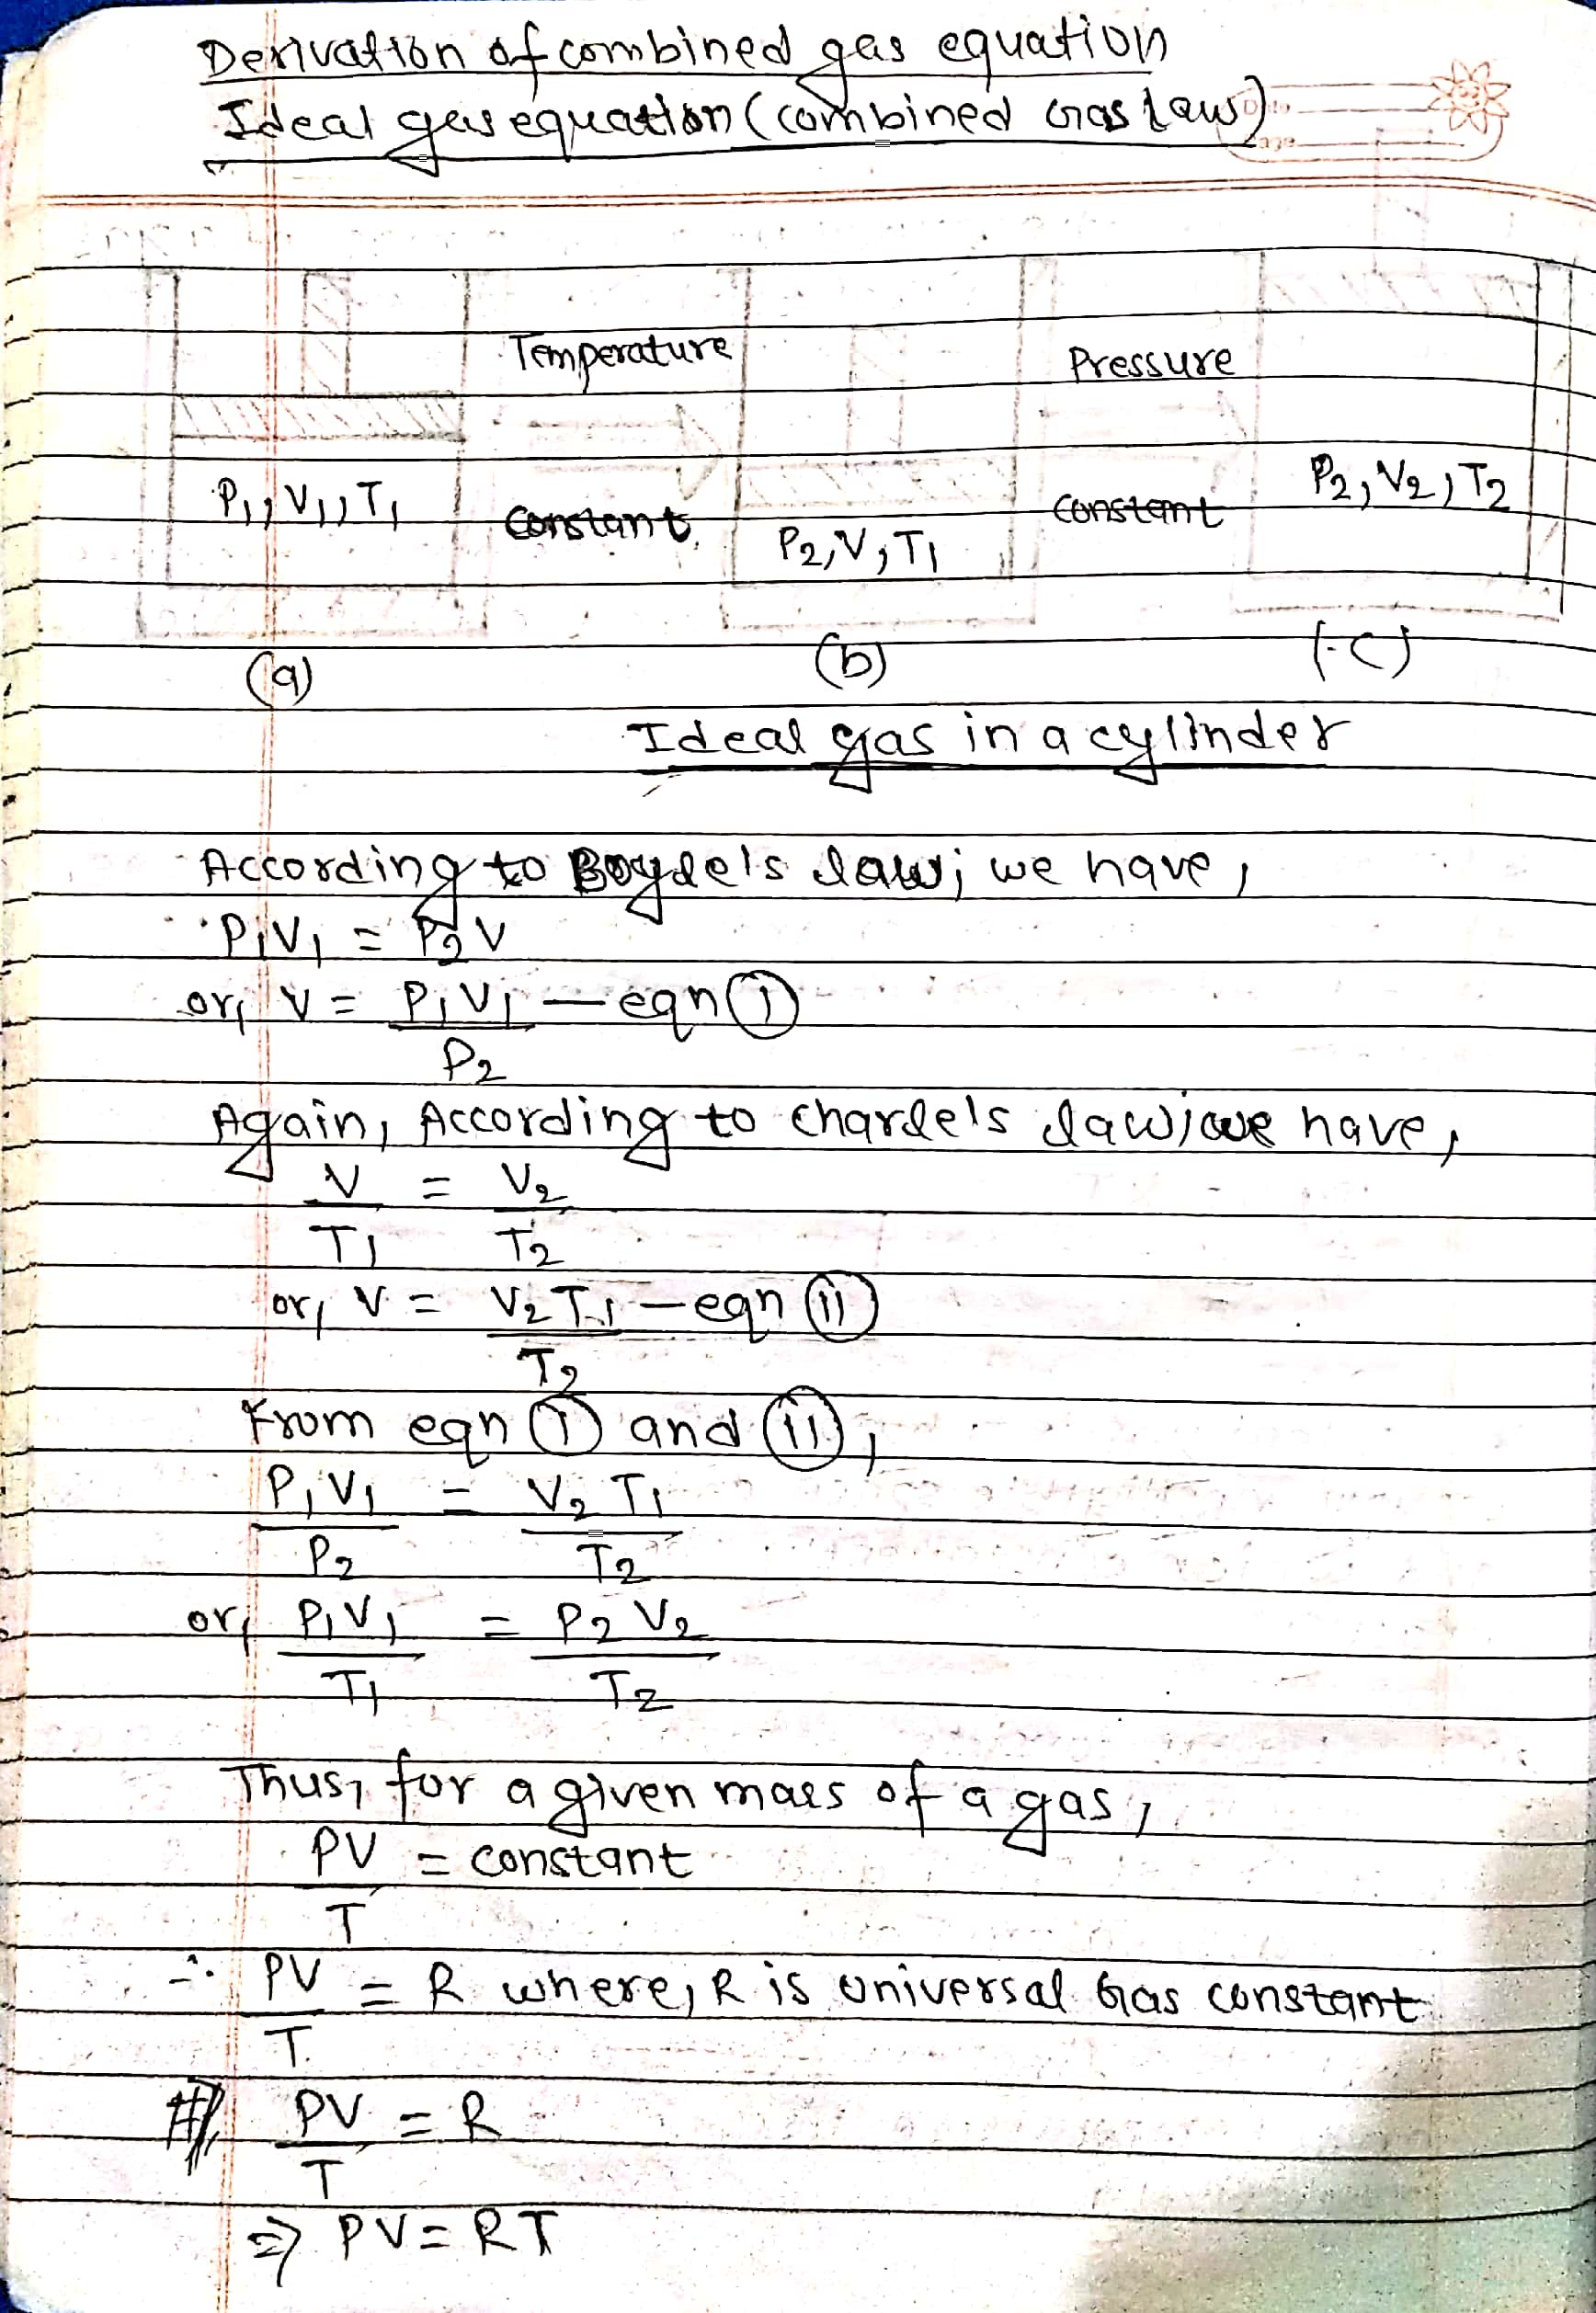 Derivation of combined gas equation
Ideal gas equation (combined Gas Law)
Temperature
Pressure
P₁, V₁, T₁
constant
P₂, V, T₁
constant
P₂, V₂, T₂
(a)
(b)
(c)
Ideal gas in a cylinder
According to Boyle's law; we have,
P₁V₁ = P₂V
or, V = P₁V₁ — eqn (i)
P₂
Again, According to Charle's law; we have,
V = V₂
T₁ T₂
or, V = V₂T₁ — eqn (ii)
T₂
From eqn (i) and (ii),
P₁V₁ = V₂T₁
P₂ T₂
or, P₁V₁ = P₂V₂
T₁ T₂
Thus, for a given mass of a gas,
PV = constant
T
∴ PV = R where, R is universal Gas constant
T
PV = R
T
⇒ PV = RT